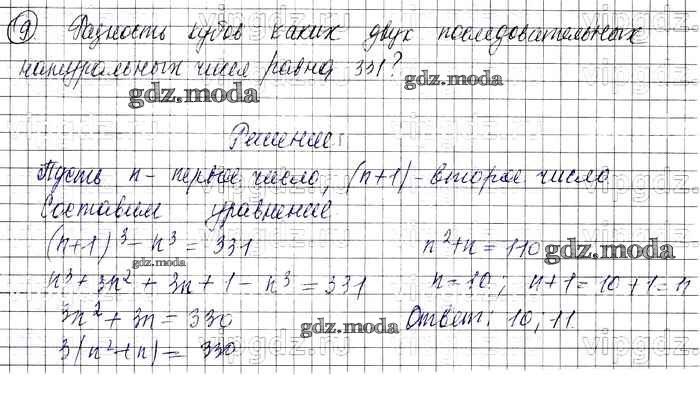 9) Разность кубов каких двух последовательных
натуральных чисел равна 331?
gdz.moda
gdz.moda
Решение:
Пусть n - первое число, (n+1) - второе число
Составим уравнение
(n+1)³ - n³ = 331
n³ + 3n² + 3n + 1 - n³ = 331
3n² + 3n = 330
3(n²+n) = 330
n² + n = 110
n = 10; n+1 = 10+1 = 11
Ответ: 10; 11.
gdz.moda
gdz.moda
gdz.moda
vipgdz.ru